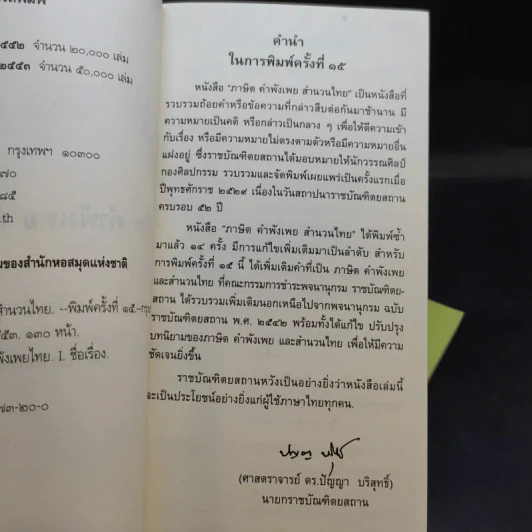 ๕๔๒ จำนวน ๒๐,๐๐๐ เล่ม
๒๕๕๓ จำนวน ๕๐,๐๐๐ เล่ม
กรุงเทพฯ ๑๐๓๐๐
๗๐
๘๕
th
มของสำนักหอสมุดแห่งชาติ
สำนวนไทย. --พิมพ์ครั้งที่ ๑๕.-กรุง
๕๕๓. ๑๓๐ หน้า.
พังเพยไทย. I. ชื่อเรื่อง.
๗๓-๒๐-๐
คำนำ
ในการพิมพ์ครั้งที่ ๑๕
หนังสือ "ภาษิต คำพังเพย สำนวนไทย" เป็นหนังสือที่
รวบรวมถ้อยคำหรือข้อความที่กล่าวสืบต่อกันมาช้านาน มี
ความหมายเป็นคติ หรือกล่าวเป็นกลาง ๆ เพื่อให้ตีความเข้า
กับเรื่อง หรือมีความหมายไม่ตรงตามตัวหรือมีความหมายอื่น
แฝงอยู่ ซึ่งราชบัณฑิตยสถานได้มอบหมายให้นักวรรณศิลป์
กองศิลปกรรม รวบรวมและจัดพิมพ์เผยแพร่เป็นครั้งแรกเมื่อ
ปีพุทธศักราช ๒๕๒๙ เนื่องในวันสถาปนาราชบัณฑิตยสถาน
ครบรอบ ๕๒ ปี
หนังสือ "ภาษิต คำพังเพย สำนวนไทย" ได้พิมพ์ซ้ำ
มาแล้ว ๑๔ ครั้ง มีการแก้ไขเพิ่มเติมมาเป็นลำดับ สำหรับ
การพิมพ์ครั้งที่ ๑๕ นี้ ได้เพิ่มเติมคำที่เป็น ภาษิต คำพังเพย
และสำนวนไทย ที่คณะกรรมการชำระพจนานุกรม ราชบัณฑิตย-
สถาน ได้รวบรวมเพิ่มเติมนอกเหนือไปจากพจนานุกรม ฉบับ
ราชบัณฑิตยสถาน พ.ศ. ๒๕๔๒ พร้อมทั้งได้แก้ไข ปรับปรุง
บทนิยามของภาษิต คำพังเพย และสำนวนไทย เพื่อให้มีความ
ชัดเจนยิ่งขึ้น
ราชบัณฑิตยสถานหวังเป็นอย่างยิ่งว่าหนังสือเล่มนี้
จะเป็นประโยชน์อย่างยิ่งแก่ผู้ใช้ภาษาไทยทุกคน.
(ศาสตราจารย์ ดร.ปัญญา บริสุทธิ์)
นายกราชบัณฑิตยสถาน